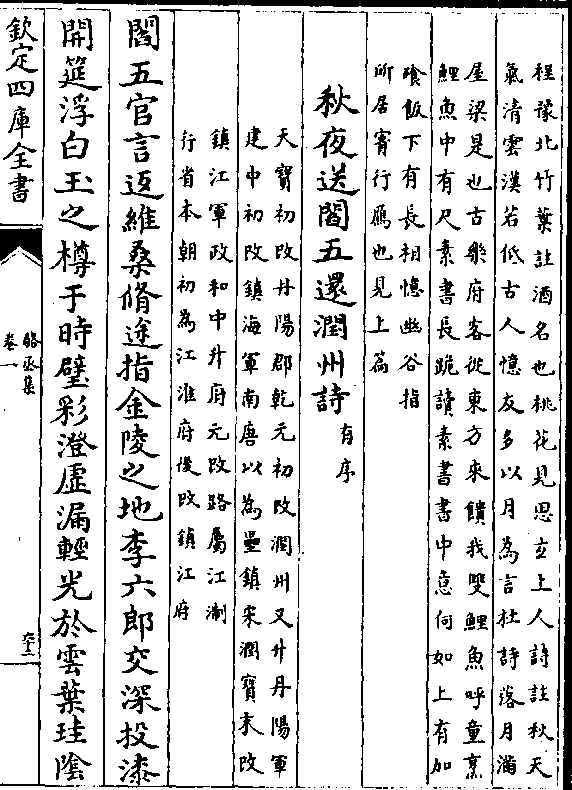 程豫北竹葉註酒名也桃花見思𤣥上人詩註秋天
氣清雲漢若低古人憶友多以月為言杜詩落月滿
屋梁是也古樂府客從東方來饋我雙鯉魚呼童烹
鯉魚中有尺素書長跪讀素書書中意何如上有加
飱飯下有長相憶幽谷指
所居賓行鴈也見上篇
秋夜送閻五還潤州詩有序
天寶初改丹陽郡乾元初改潤州又升丹陽軍
建中初改鎮海軍南唐以為重鎮宋潤寶末改
鎮江軍政和中升府元改路屬江淛
行省本朝初為江淮府後改鎮江府
閻五官言返維桑脩途指金陵之地李六郎交深投漆
開筵浮白玉之樽于時璧彩澄虛漏輕光於雲葉珪陰
欽定四庫全書
駱丞集
卷一
六十三